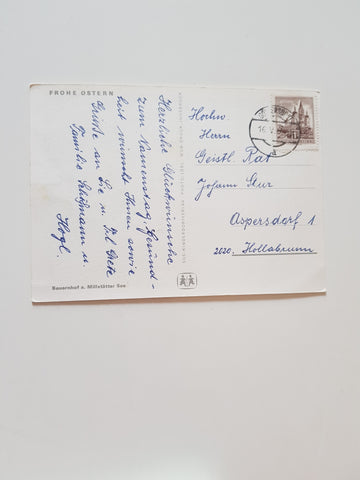 FROHE OSTERN
Herzliche Glückwünsche
zum Namenstag, Gesund-
heit wünscht Ihnen sowie
Grüße an Sie u. Frl. Grete
Familie Schöfmann u.
Hogl.
Bauernhof a. Millstätter See
Hochw.
Herrn
Geistl. Rat
Johann Stur
Aspersdorf 1
2020, Hollabrunn